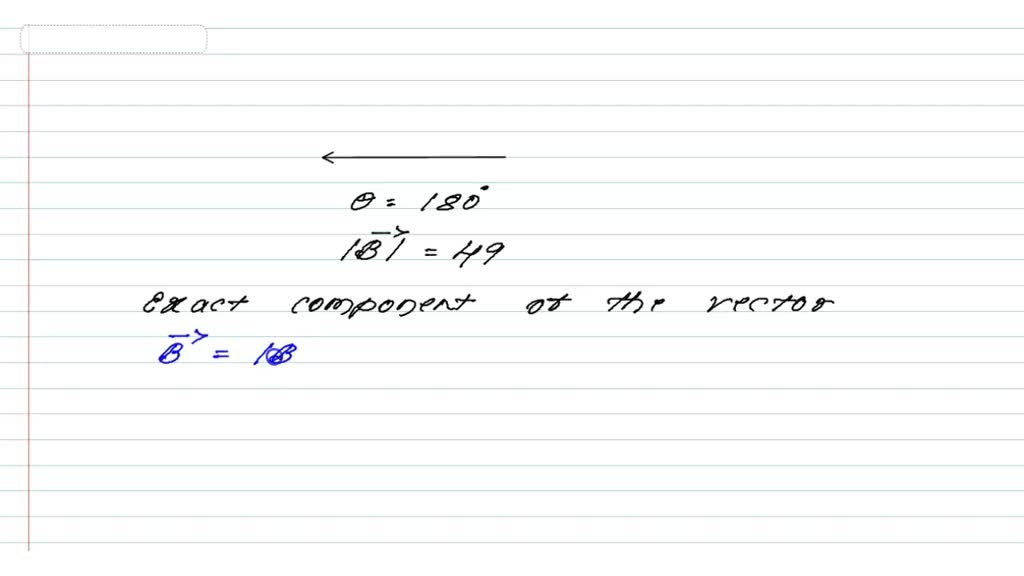 θ = 180°
|B⃗| = 49
Exact component of the vector
B⃗ = |B